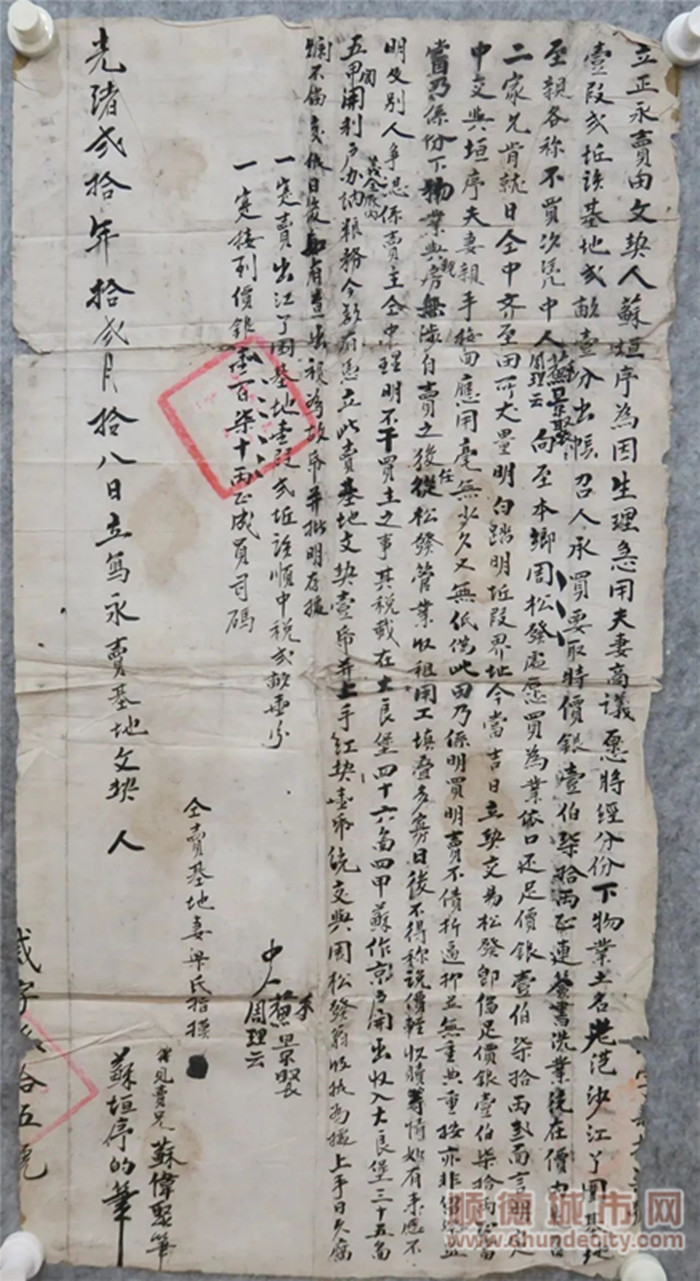 立正永賣田文契人蘇垣序為因生理急用夫妻商議愿將經分份下物業土名老范沙江丫圍基地
壹段弍坵該基地弍畝壹分出帳召人承買要取時價銀壹伯柒拾両正連簽書洗業統在價內
至親各称不買次凴中人蘇景堅周理云向至本鄉周松發處愿買為業依口还足價銀壹伯柒拾両對面言明
二家允肯就日仝中齐至田所丈量明白踏明坵段界址今當吉日立契交易松發即偹足價銀壹伯柒拾両正當
中交與垣序夫妻親手接回應用毫無少欠又無低偽此田乃係明買明賣不債折逼抑並無重典重按亦非
嘗乃係份下物業與房親無涉自賣之後任從松發管業收租用工填叠多寡日後不得称說價輕收贖等情如有來歷不
明及別人争思係賣主仝中理明不干買主之事其税載在大良堡四十六啚四甲蘇作京戶開出收入大良堡三十五啚
五甲周利戶办納粮務今欲有凴立此賣基地文契壹帋并上手紅契壹帋統交與周松發翁收执為據上手日久腐
爛不偹交俄日後如有查出視為故帋并批明存據
一寔賣出江丫圍基地壹段弍坵該順中税弍畝壹分
一寔接到價銀壹百柒十両正成員司碼
中人蘇景堅
周理云
仝賣基地妻畢氏指摸
見賣兄蘇偉堅筆
蘇垣序的筆
光緒弍拾年拾弍月拾八日立寫永賣基地文契人
拾五號
順德城市网
www.shundecity.com